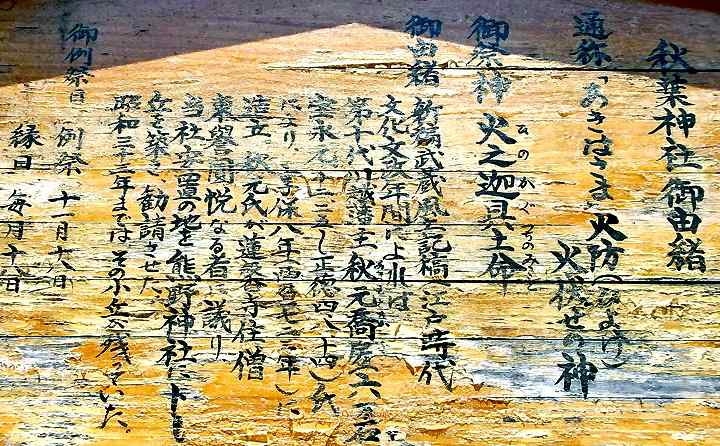 秋葉神社御由緒
通称「あきはさま」火防(ひよけ)
火伏せの神
御祭神 火之迦具土命
ひのかぐつちのみこと
御由緒 新編武蔵風土記稿(江戸時代
文化文政年間)によれば
第十代川越藩主 秋元喬房六万石
により、享保八年(西暦一七二三年)に
造立。秋元氏が蓮馨寺住僧
東誉聞悦なる者に議り
当社安置の地を熊野神社に
丘を築き勧請させた。
昭和三十二年まではその小丘が残っていた。
御例祭日 例祭 十一月十八日
縁日 毎月十八日